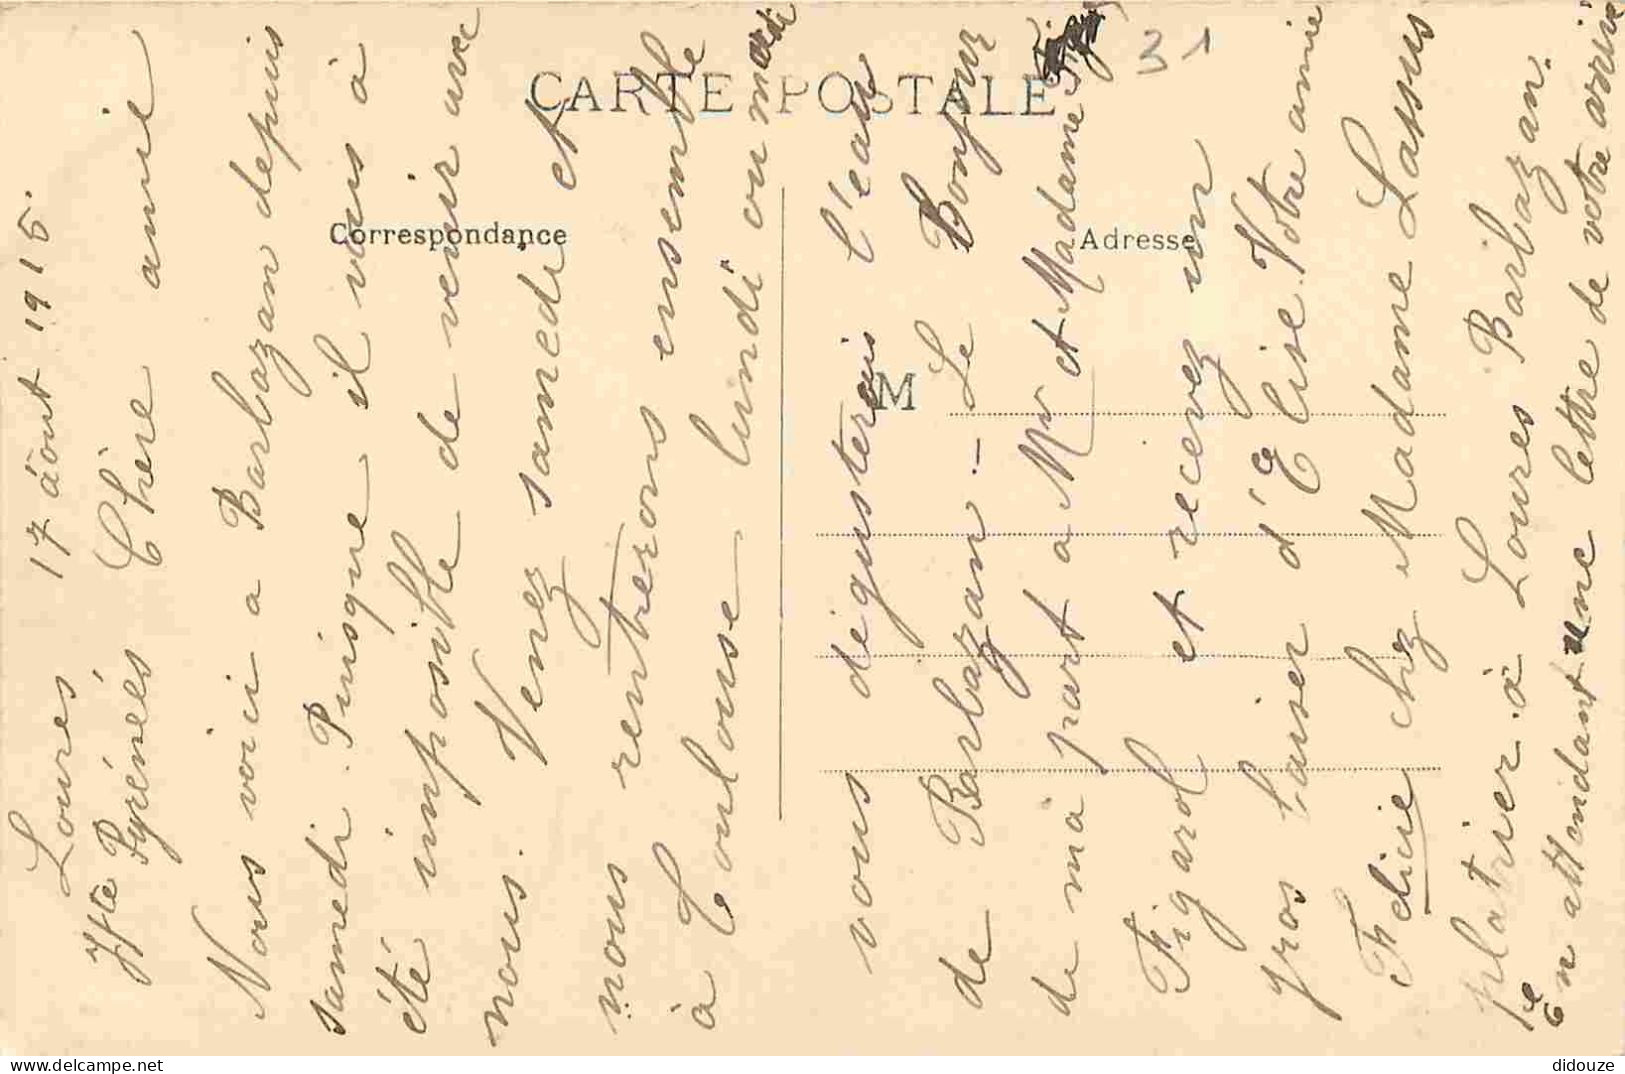 CARTE POSTALE
Correspondance
Adresse
M
31
Loures 17 août 1915.
Hte Pyrénés Chère amie
Nous voici a Barbazan depuis
samedi. Puisque il vous à
été imposible de venir avec
nous. Venez samedi et
nous rentrerons ensemble
à Toulouse lundi ou mardi
vous dégusterais l'eau
de Barbazan - Le Bonjour
de ma part a Mr et Madame
Figarol et recevez un
gros baiser d'Elise. Votre amie
Felicie chez Madame Lassus
platrier à Loures Barbazan.
En attendant une lettre de votre arrivé
didouze